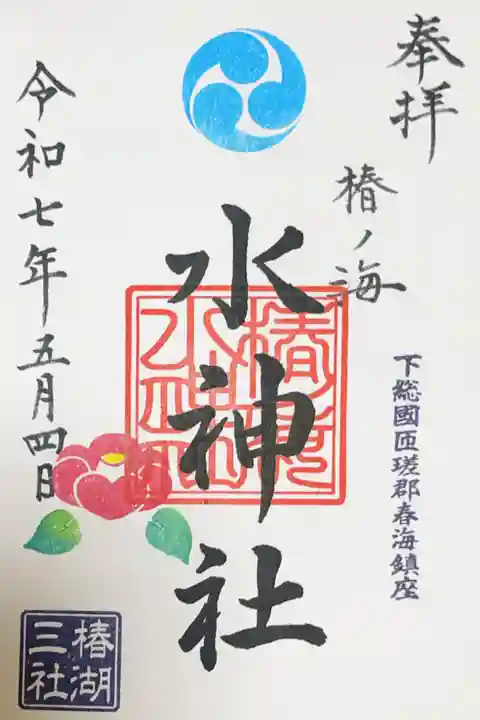 奉拝
椿ノ海
下総國匝瑳郡春海鎮座
水神社
令和七年五月四日
椿湖
三社